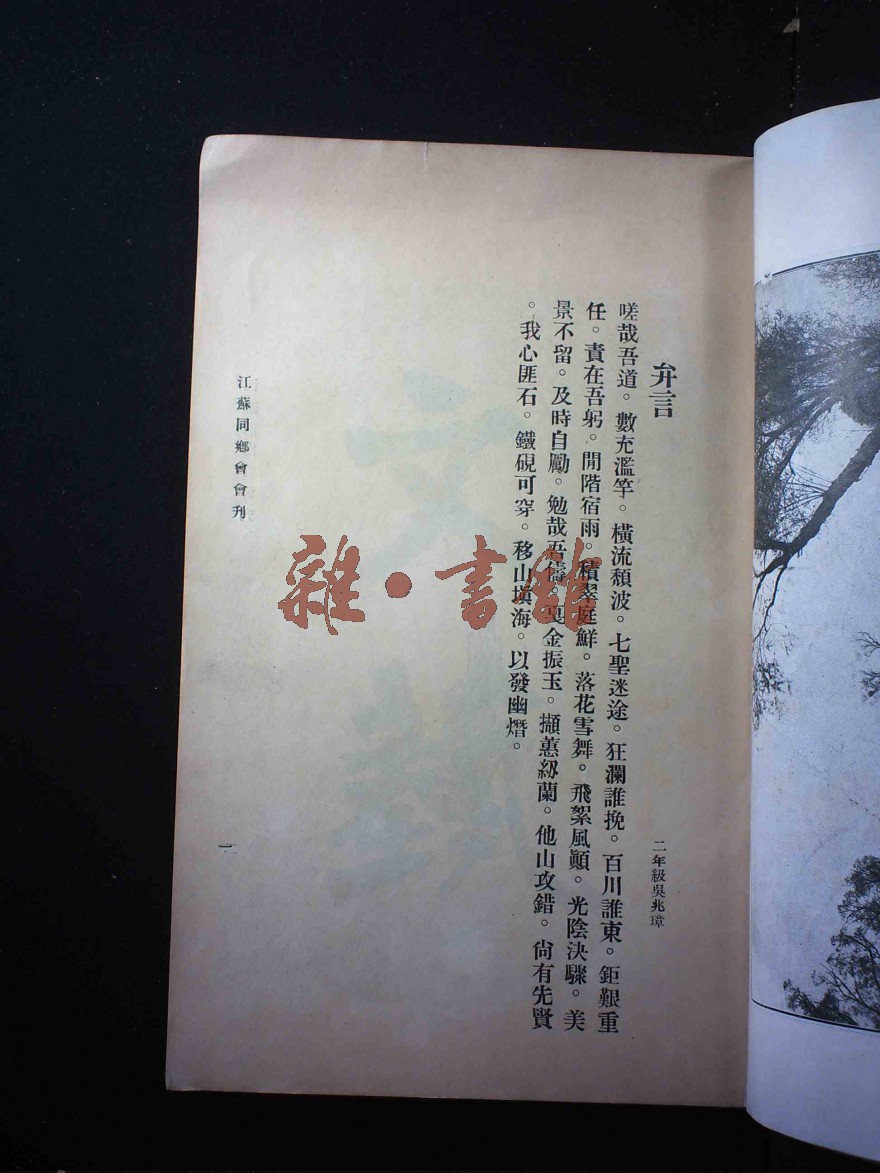 弁言
二年級吳兆璋
嗟哉吾道。數充濫竽。橫流頹波。七聖迷途。狂瀾誰挽。百川誰東。鉅艱重
任。責在吾躬。閒階宿雨。積翠庭鮮。落花雪舞。飛絮風顚。光陰決驟。美
景不留。及時自勵。勉哉吾儔。戛金振玉。擷蕙紉蘭。他山攻錯。尙有先賢
。我心匪石。鐵硯可穿。移山塡海。以發幽熸。
江蘇同鄉會會刊
一
雜·書館